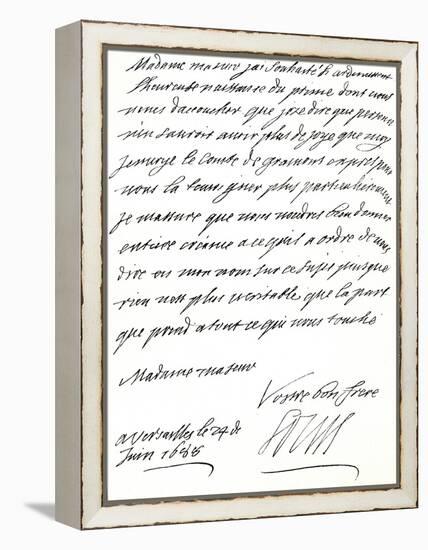 Madame ma seur jai souhaité si ardemment
l'heureuse naissance du prince dont vous
venes dacoucher que joze dire que personne
n'en sauroit avoir plus de joye que moy
Jenvoye le Comte de Gramont exprés pour
vous la temoigner plus particulierement
Je massure que vous voudres bien donner
entiere créance a ce quil a ordre de vous
dire en mon nom sur ce sujet puisque
rien nest plus veritable que la part
que prend a tout ce qui vous touche
Madame ma seur
Vostre bon frere
Louis
a Versailles le 24 de
Juin 1688